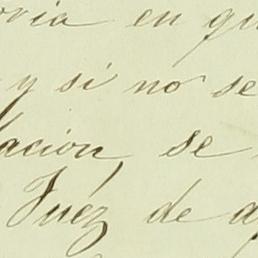 oria en qu
y si no se
lación, se
Juéz de a